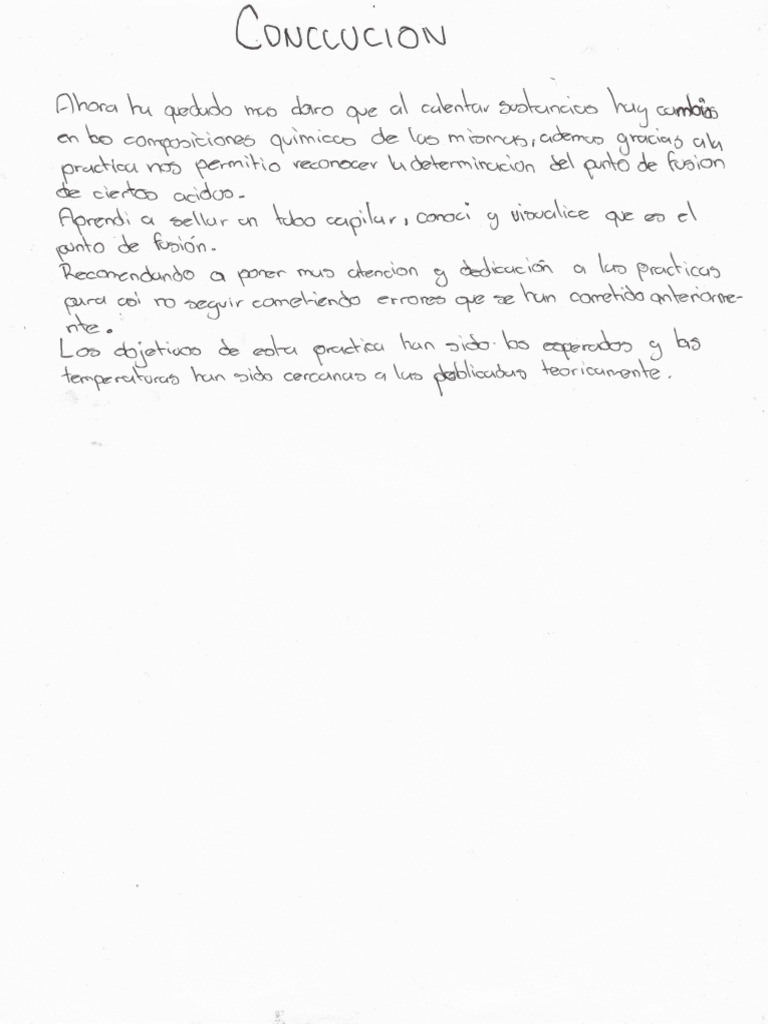 CONCLUCION
Ahora ha quedado mas claro que al calentar sustancias hay cambios
en las composiciones químicas de las mismas, ademas gracias a la
practica nos permitio reconocer la determinacion del punto de fusion
de ciertos acidos.
Aprendi a sellar un tubo capilar, conoci y visualice que es el
punto de fusión.
Recomendando a poner mas atencion y dedicación a las practicas
para asi no seguir cometiendo errores que se han cometido anteriorme-
nte.
Los objetivos de esta practica han sido los esperados y las
temperaturas han sido cercanas a las publicadas teoricamente.